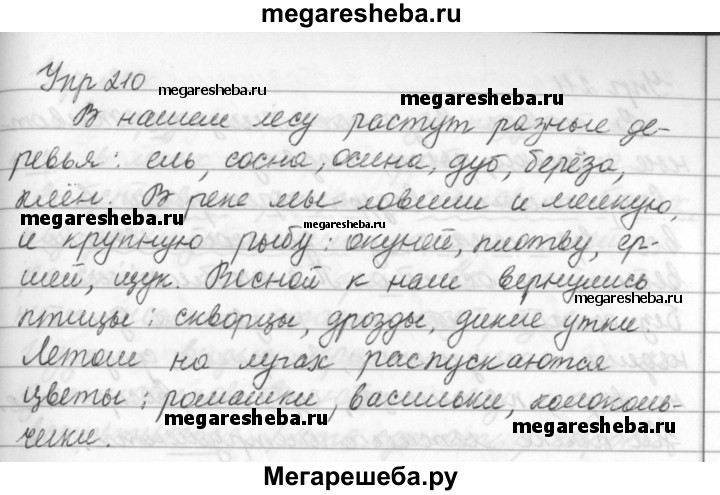 megaresheba.ru
Упр 210
megaresheba.ru
megaresheba.ru
В нашем лесу растут разные де-
ревья: ель, сосна, осина, дуб, берёза,
клён. В реке мы ловили и мелкую,
megaresheba.ru
megaresheba.ru
и крупную рыбу: окуней, плотву, ер-
шей, щук. Весной к нам вернулись
megaresheba.ru
птицы: скворцы, дрозды, дикие утки.
Летом на лугах распускаются
цветы: ромашки, васильки, колоколь-
megaresheba.ru
megaresheba.ru
чики.
Мегарешеба.ру